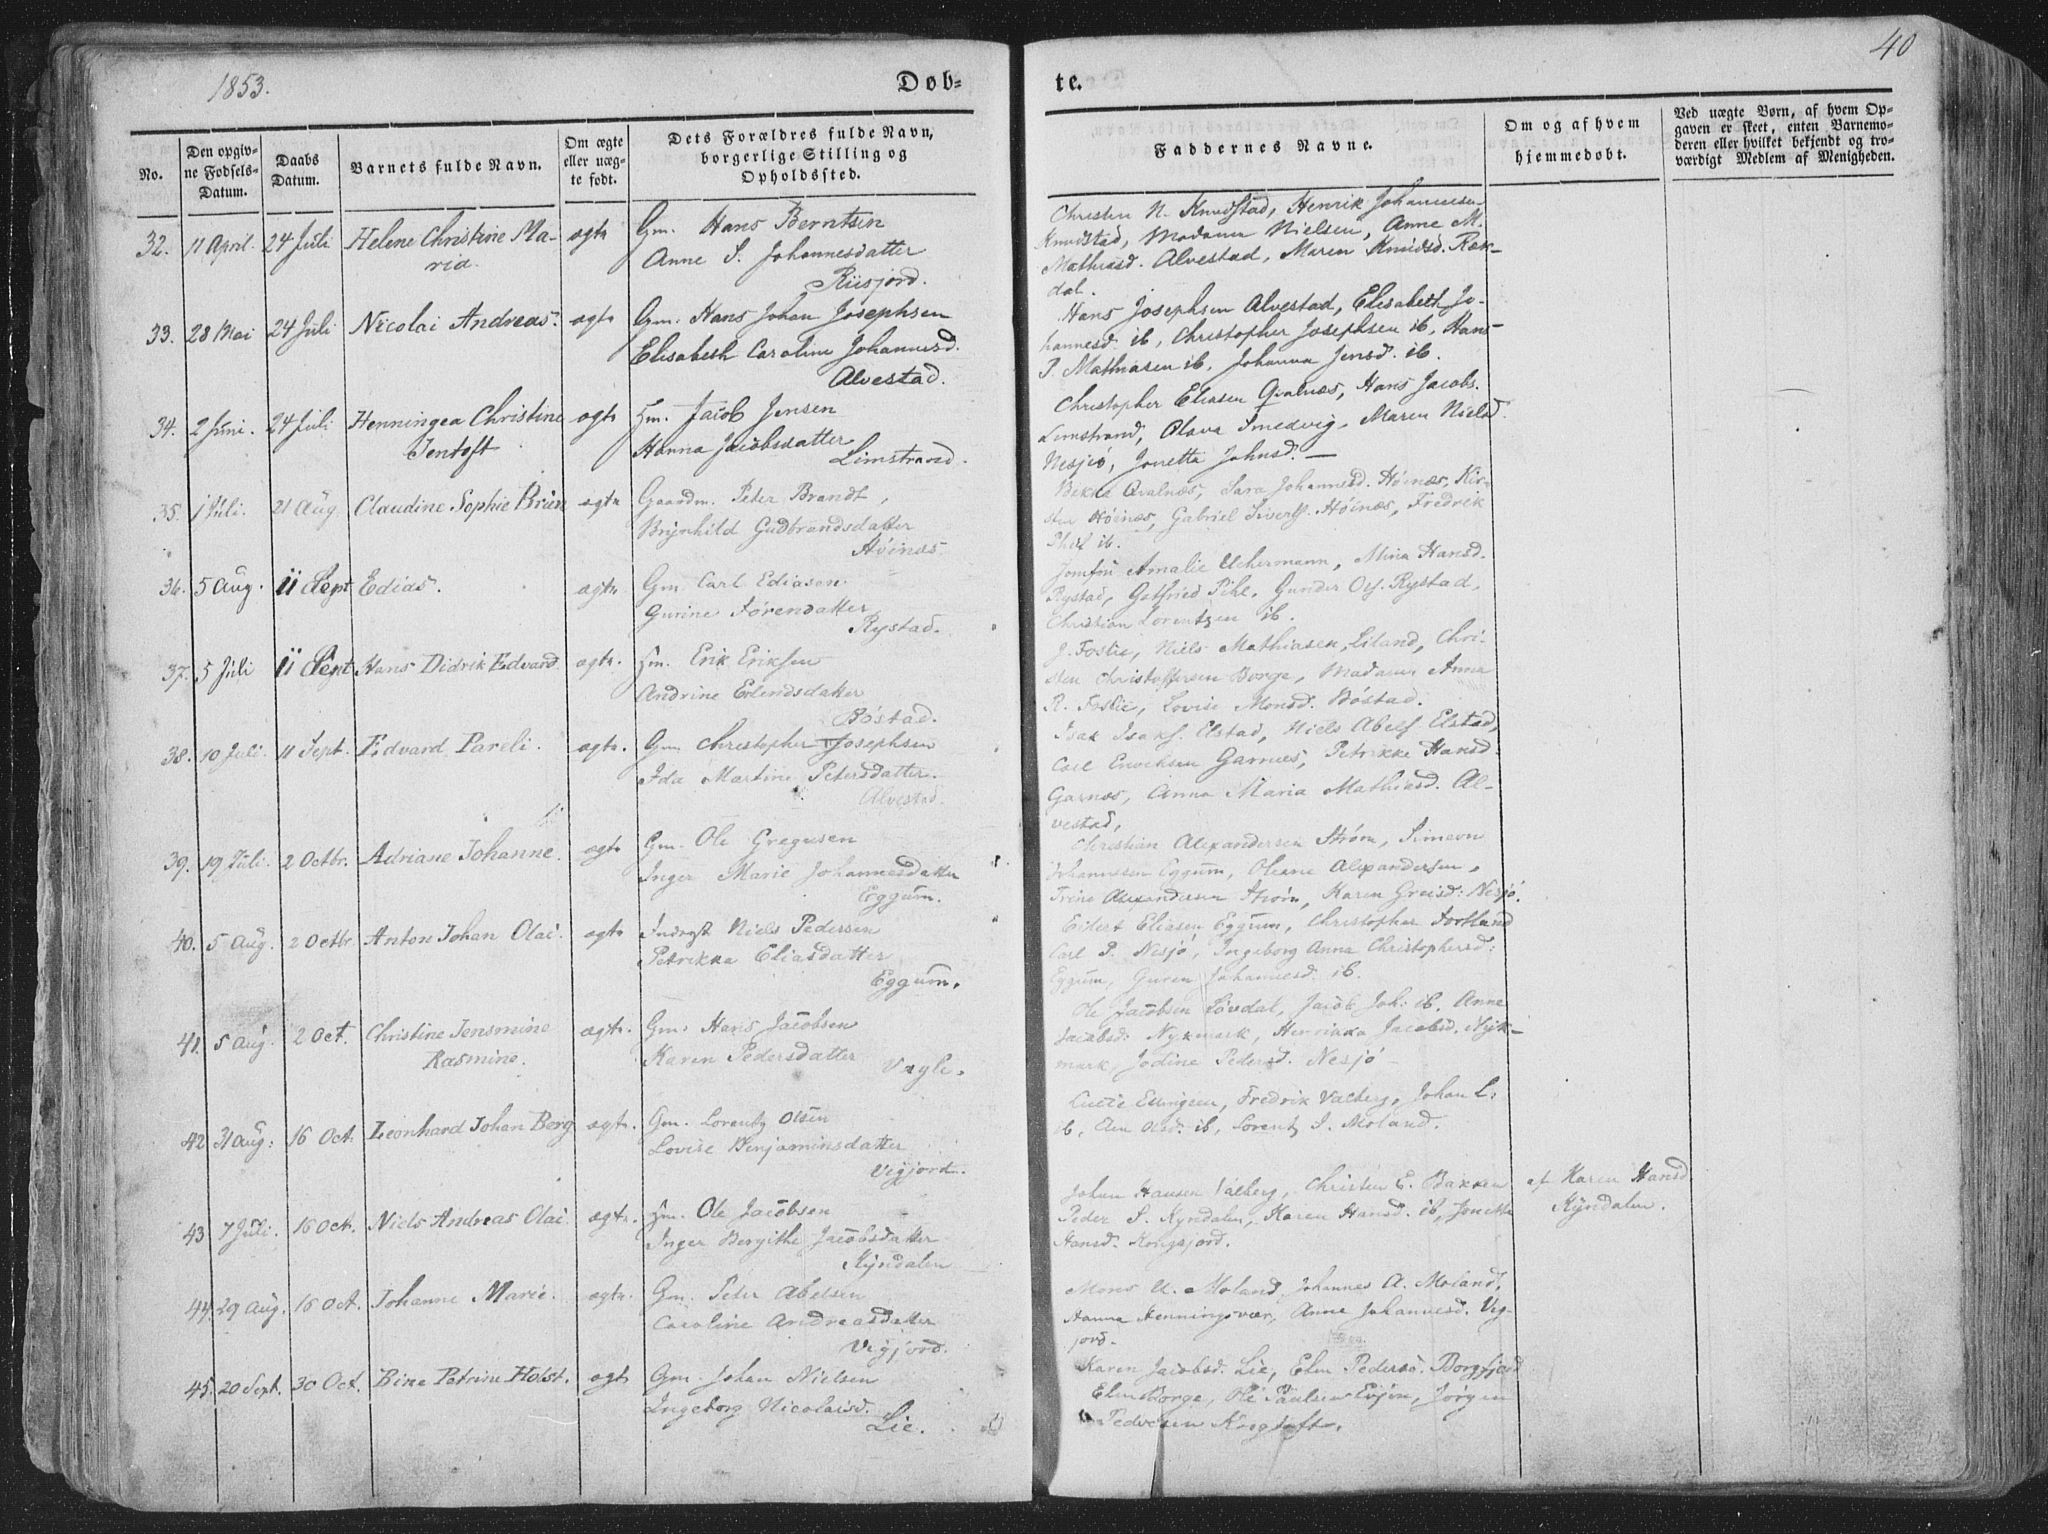 1853.
Døb-
te.
40
No.
Den opgiv-
ne Fødsels-
Datum.
Daabs
Datum.
Barnets fulde Navn.
Om ægte
eller uæg-
te født.
Dets Forældres fulde Navn,
borgerlige Stilling og
Opholdssted.
Faddernes Navne.
Om og af hvem
hjemmedøbt.
Ved uægte Børn, af hvem Op-
gaven er skeet, enten Barnemo-
deren eller hvilket bekjendt og tro-
værdigt Medlem af Menigheden.
32. 11 April. 24 Juli Helene Christine Ma-
ria.
ægte
Gm. Hans Berntsen
Anne S. Johannesdatter
Riisjord.
Christen N. Knudstad, Henrik Johannesen
Knudstad, Madame Nielsen, Anne M.
Mathiasd. Alvestad, Maren Knudsd. Ræk-
dal.
33. 28 Mai 24 Juli Nicolai Andreas. ægte
Gm. Hans Johan Josephsen
Elisabeth Caroline Johannesd.
Alvestad.
Hans Josephsen Alvestad, Elisabeth Jo-
hannesd. ib, Christopher Josephsen ib, Hans
P. Mathiasen ib, Johanna Jensd. ib.
34. 2 Juni. 24 Juli Henningea Christine
Jentoft
ægte
Hm. Jacob Jensen
Hanna Jacobsdatter
Limstrand.
Christopher Eliasen Qvalnæs, Hans Jacobs.
Limstrand, Olava Smedvig, Maren Nielsd.
Nesjø, Jonetta Johnsd. —
35. 1 Juli. 21 Aug. Claudine Sophie Brun ægte
Gaardm. Peter Brandt,
Brynhild Gudbrandsdatter
Høinæs.
Qvalnæs, Sara Johannesd. Høinæs, Kir-
Høinæs, Gabriel Sivers. Høinæs, Fredrik
ib.
36. 5 Aug. 11 Sept Edias. ægte
Gm. Carl Ediasen.
Gurine Sørendatter
Rystad.
Jomfru Amalie Uchermann, Mina Hansd.
Rystad, Gotfried Pihl, Gunder Rystad,
Christian Lorentzen ib.
37. 5 Juli 11 Sept Hans Didrik Edvard ægte.
Hm. Erik Eriksen
Andrine Erlendsdatter
Bøstad.
J. Foslie, Niels Mathiasen Liland, Chri-
sten Christoffersen Borge, Madame Anna
R. Foslie, Lovise Monsd. Bøstad.
38. 10 Juli. 11 Sept. Edvard Pareli. ægte.
Gm. Christopher Josephsen
Ida Martine Petersdatter.
Alvestad.
Isak Isaks. Elstad, Niels Abels. Elstad,
Carl Garnæs, Petrikke Hansd.
Garnæs, Anna Maria Mathiasd. Al-
vestad,
39. 19 Juli. 2 Octbr. Adriane Johanne. ægte
Gm. Ole Gregusen
Inger Marie Johannesdatter
Eggum.
Christian Alexandersen Strøm, Simeon
Johannesen Eggum, Oleane Alexandersen,
Trine Alexandersen Strøm, Karen Nesjø.
40. 5 Aug. 2 Octbr. Anton Johan Olai. ægte
Niels Pedersen
Petrikka Eliasdatter
Eggum.
Eilert Eliasen Eggum, Christopher
Carl P. Nesjø, Ingeborg Anna Christophersd:
Eggum, Guren Johannesd. ib.
41. 5 Aug. 2 Oct. Christine Jensmine
Rasmine.
ægte.
Gm. Hans Jacobsen
Karen Pedersdatter
Vagle.
Ole Jacobsen Løvdal, Jacob Joh: ib. Anne
Jacobsd: Nykmark, Henrikka Jacobsd. Nyk-
mark, Jodine Pedersd. Nesjø
42 31 Aug: 16 Oct. Leonhard Johan Berg ægte.
Gm. Lorentz Olsen
Lovise Benjaminsdatter
Vigjord.
Ellingsen, Fredrik Valberg, Johan L:
ib, Olsd: ib, Lorentz J. Moland.
43 7 Juli. 16 Oct. Niels Andreas Olai. ægte.
Hm. Ole Jacobsen
Inger Bergithe Jacobsdatter
Kyndalen
Johan Hansen Valberg, Christen E. Bakken
Peder S. Kyndalen, Karen Hansd. ib, Jonetta
Hansd. Kongsjord.
af Karen Hansd
Kyndalen.
44. 29 Aug. 16 Oct. Johanne Marie. ægte.
Gm. Peter Abelsen
Caroline Andreasdatter
Vigjord.
Mons A. Moland, Johannes A. Moland,
Hanna Henningsvær, Anne Johannesd. Vig-
jord.
45. 20 Sept. 30 Oct. Bine Petrine Holst. ægte
Gm. Johan Nielsen
Ingeborg Nicolaisd.
Lie.
Karen Jacobsd. Lie, Elen Pedersd. Borgfjord
Elen Borge, Ole Paulsen Evjen, Jørgen
Pedersen Krogtoft.